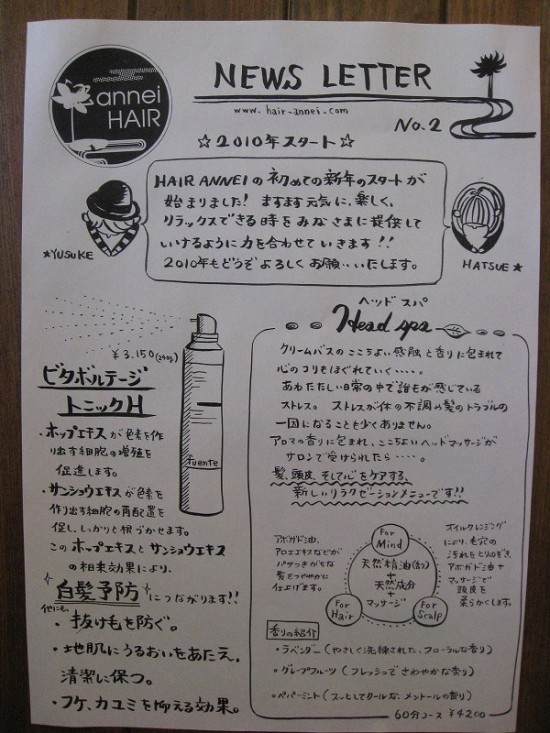 annei
HAIR
NEWS LETTER
www.hair-annei.com
No.2
☆2010年スタート☆
HAIR ANNEIの初めての新年のスタートが
始まりました! ますます元気に、楽しく、
リラックスできる時をみなさまに提供して
いけるように力を合わせていきます!!
2010年もどうぞよろしくお願いいたします。
★YUSUKE
HATSUE★
¥3,150
ビタボルテージ
トニックH
・ホップエキスが色素を作
り出す細胞の増殖を
促進します。
・サンショウエキスが色素を
作り出す細胞の再配置を
促し、しっかりと根づかせます。
このホップエキスとサンショウエキス
の相乗効果により、
白髪予防につながります!!
他にも、
・抜け毛を防ぐ。
・地肌にうるおいをあたえ、
清潔に保つ。
・フケ、カユミを抑える効果。
fuente
ヘッドスパ
Head spa
クリームバスのここちよい感触と香りに包まれて
心のコリもほぐれていく‥‥。
あわただしい日常の中で誰もが感じている
ストレス。ストレスが体の不調や髪のトラブルの
一因になることも少くありません。
アロマの香りに包まれ、ここちよいヘッドマッサージが
サロンで受けられたら‥‥。
髪、頭皮、そして心をケアする、
新しいリラクゼーションメニューです!!
For
Mind
天然精油
+
天然成分
+
マッサージ
For
Hair
For
Scalp
アボガド油、
アロエエキスなどが
パサつきがちな
髪をつややかに
仕上げます。
オイルクレンジング
により、毛穴の
汚れをとりのぞき、
アボガド油+
マッサージで
頭皮を
柔らかくします。
香りの紹介
・ラベンダー(やさしく洗練された、フローラルな香り)
・グレープフルーツ(フレッシュでさわやかな香り)
・ペパーミント(スッとしてクールな、メントールの香り)
60分コース ¥4200